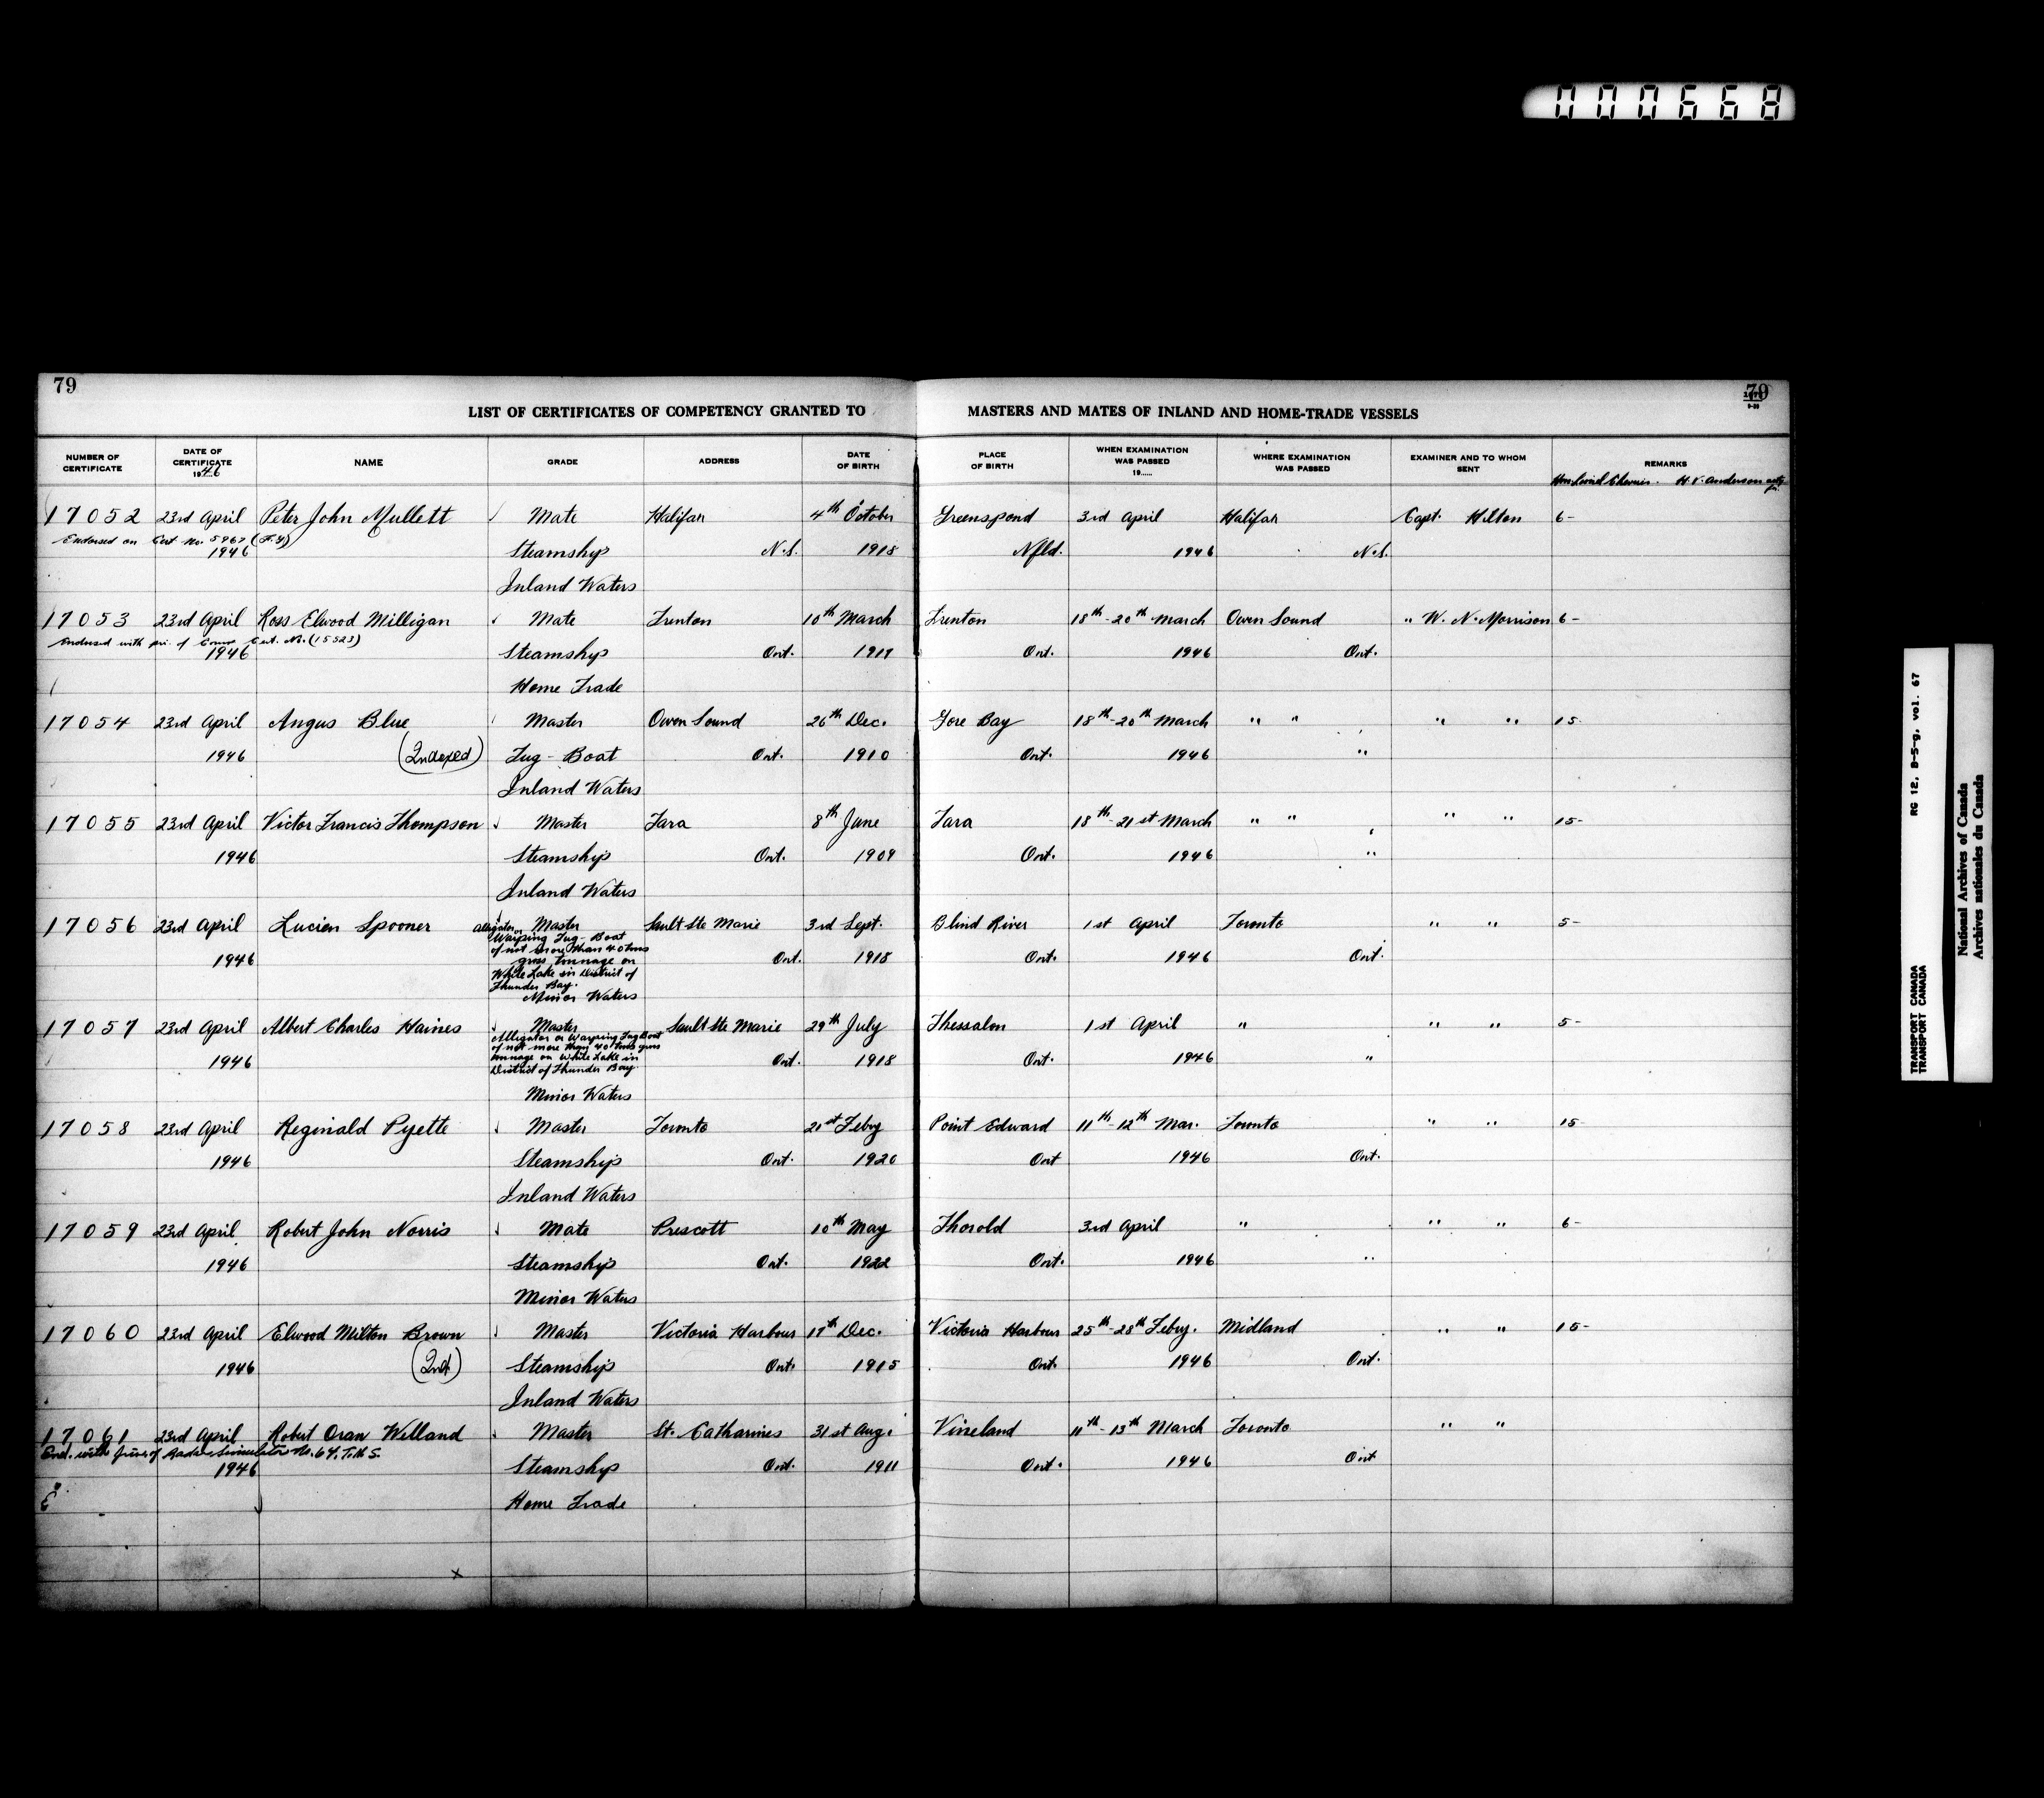 000668
79
79
LIST OF CERTIFICATES OF COMPETENCY GRANTED TO MASTERS AND MATES OF INLAND AND HOME-TRADE VESSELS
NUMBER OF CERTIFICATE DATE OF CERTIFICATE 1946 NAME GRADE ADDRESS DATE OF BIRTH PLACE OF BIRTH WHEN EXAMINATION WAS PASSED 19...... WHERE EXAMINATION WAS PASSED EXAMINER AND TO WHOM SENT REMARKS
Hon. Lionel Chevrier. H. V. Anderson
17052 23rd April Peter John Mullett Mate Halifax 4th October Greenspond 3rd April Halifax Capt. Hilton 6-
Endorsed on Cert No. 5967 (F.G)
1946 Steamship N.S. 1918 Nfld. 1946 N.S.
Inland Waters
17053 23rd April Ross Elwood Milligan Mate Trenton 10th March Trenton 18th-20th March Owen Sound " W. N. Morrison 6-
Endorsed with Cert. No. (15523)
1946 Steamship Ont. 1917 Ont. 1946 Ont.
Home Trade
17054 23rd April Angus Blue Master Owen Sound 26th Dec. Gore Bay 18th-20th March " " " " 15-
1946 (Indexed) Tug-Boat Ont. 1910 Ont. 1946 "
Inland Waters
17055 23rd April Victor Francis Thompson Master Tara 8th June Tara 18th-21st March " " " " 15-
1946 Steamship Ont. 1909 Ont. 1946 "
Inland Waters
17056 23rd April Lucien Spooner Master Sault Ste Marie 3rd Sept. Blind River 1st April Toronto " " 5-
Alligator or Warping Tug-Boat
of not more than 40 tons
1946 gross tonnage on Ont. 1918 Ont. 1946 Ont.
White Lake in District of
Thunder Bay.
Minor Waters
17057 23rd April Albert Charles Haines Master Sault Ste Marie 29th July Thessalon 1st April " " " 5-
Alligator or Warping Tug Boat
of not more than 40 tons gross
1946 tonnage on White Lake in Ont. 1918 Ont. 1946 "
District of Thunder Bay.
Minor Waters
17058 23rd April Reginald Pyette Master Toronto 21st Feby Point Edward 11th-12th Mar. Toronto " " 15-
1946 Steamship Ont. 1920 Ont 1946 Ont.
Inland Waters
17059 23rd April Robert John Norris Mate Prescott 10th May Thorold 3rd April " " " 6-
1946 Steamship Ont. 1922 Ont. 1946 "
Minor Waters
17060 23rd April Elwood Milton Brown Master Victoria Harbour 17th Dec. Victoria Harbour 25th-28th Feby. Midland " " 15-
1946 (Ind) Steamship Ont. 1915 Ont. 1946 Ont.
Inland Waters
17061 23rd April Robert Oran Welland Master St. Catharines 31st Aug. Vineland 11th-13th March Toronto " "
End. with Radar Simulator No. 64. T.M.S.
1946 Steamship Ont. 1911 Ont. 1946 Ont
E Home Trade
x
RG 12, B-5-g, vol. 67
TRANSPORT CANADA
TRANSPORT CANADA
National Archives of Canada
Archives nationales du Canada